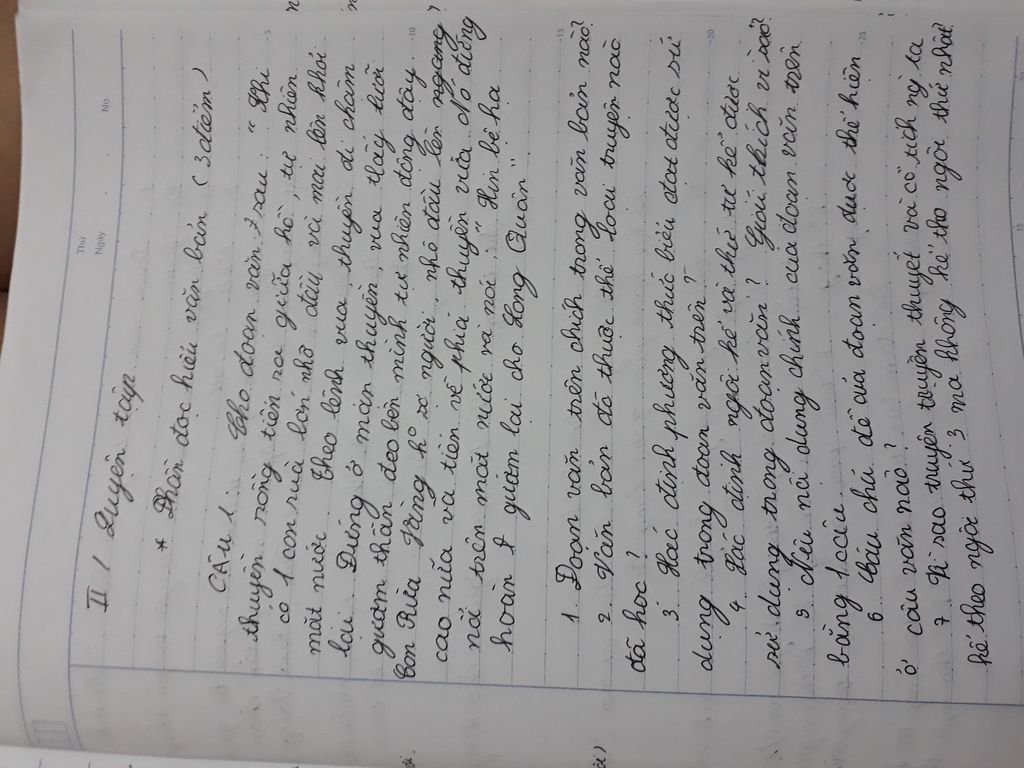 Thứ
Ngày
No
II / Luyện tập
* Phần đọc hiểu văn bản ( 3 điểm )
CÂu 1 : Cho đoạn văn sau : " Khi
thuyền rồng tiến ra giữa hồ, tự nhiên
có 1 con rùa lớn nhô đầu và mai lên khỏi
mặt nước. Theo lệnh vua, thuyền đi chậm
lại. Đứng ở mạn thuyền, vua thấy lưỡi
gươm thần đeo bên mình tự nhiên động đậy.
Con Rùa Vàng k° sợ người, nhô đầu lên
cao nữa và tiến về phía thuyền vua. Nó đứng
nổi trên mặt nước và nói : " Xin bệ hạ
hoàn gươm lại cho Long Quân "
1 Đoạn văn trên trích trong văn bản nào?
2 Văn bản đó thuộc thể loại truyện nào
đã học ?
3 Xác định phương thức biểu đạt được sử
dụng trong đoạn văn trên ?
4 Xác định ngôi kể và thứ tự kể được
sử dụng trong đoạn văn ? Giải thích vì sao?
5 Nêu nội dung chính của đoạn văn trên
bằng 1 câu
6 Câu chủ đề của đoạn văn được thể hiện
ở câu văn nào ?
7 Vì sao truyện truyền thuyết và cổ tích ng ta
kể theo ngôi thứ 3 mà không kể tho ngôi thứ nhất
5
10
15
20
25